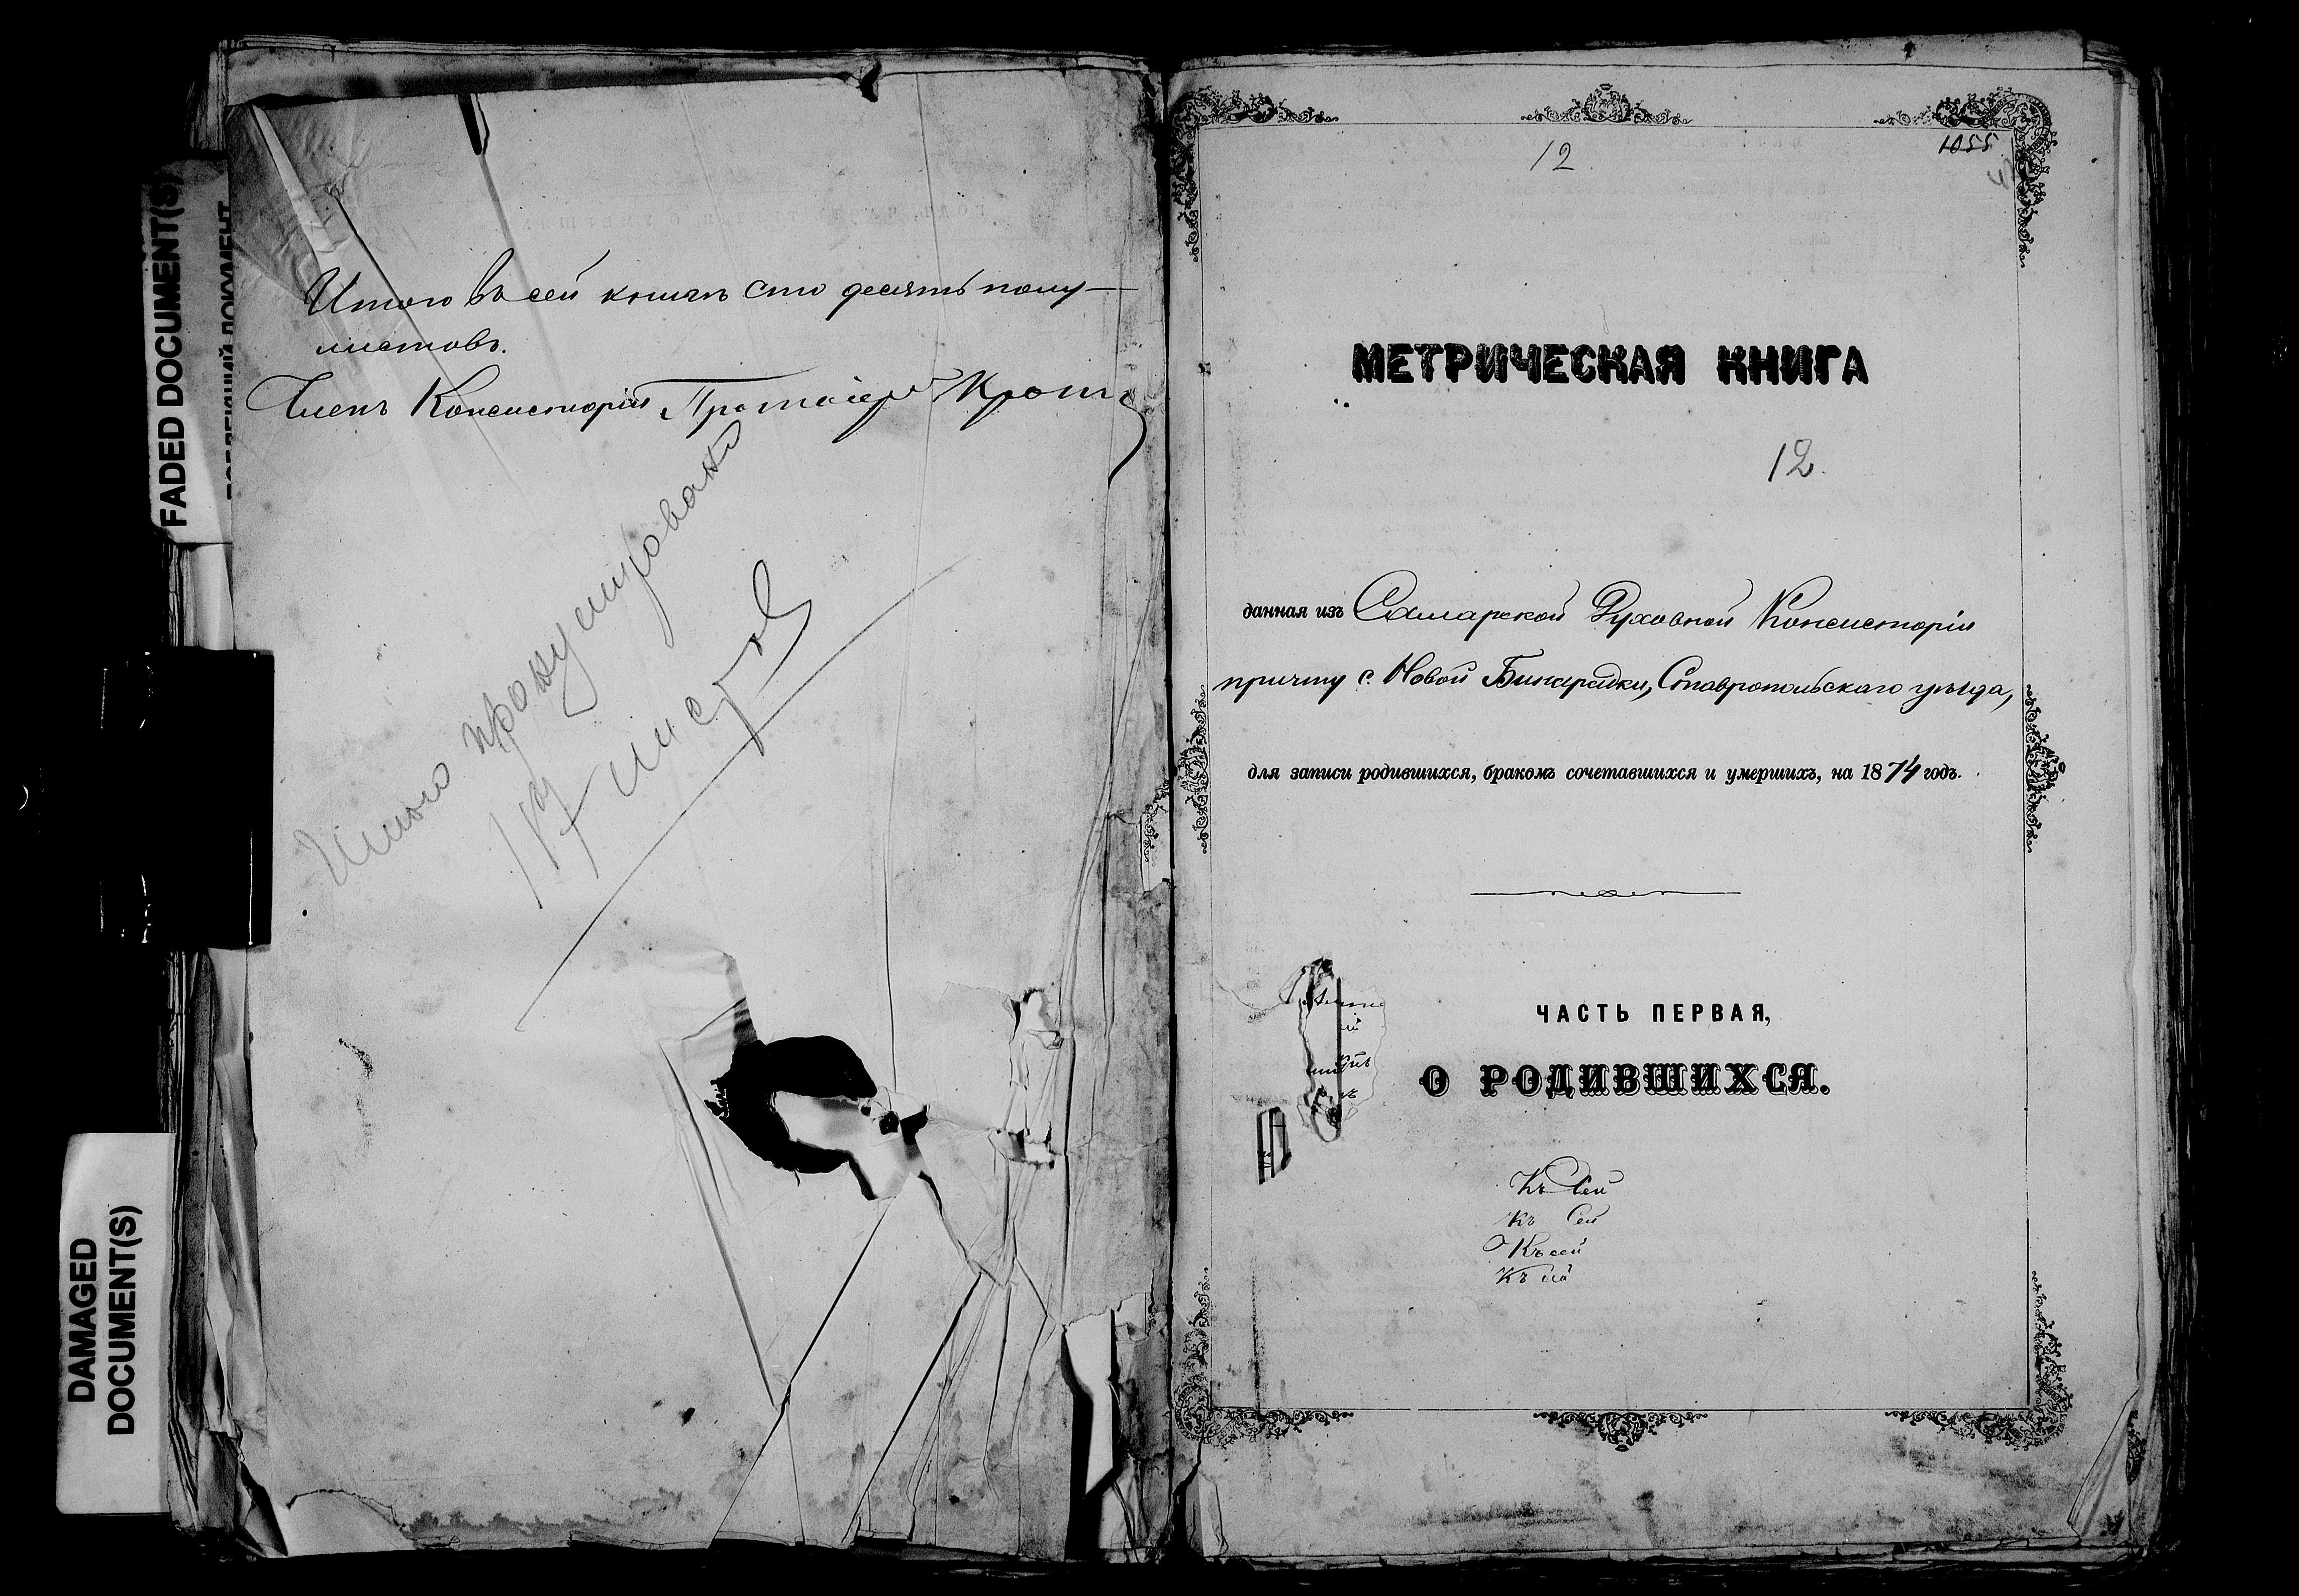 FADED DOCUMENT(S)
DAMAGED
DOCUMENT(S)
Итого въ сей книгѣ сто десять полу-
листовъ.
Членъ Консисторіи Протоіерей
Итого пронумеровано
листов
12
1055
МЕТРИЧЕСКАЯ КНИГА
12.
данная изъ Самарской Духовной Консисторіи
причту с. Новой Бинарадки, Ставропольскаго уѣзда,
для записи родившихся, бракомъ сочетавшихся и умершихъ, на 1874 годъ.
ЧАСТЬ ПЕРВАЯ,
О РОДИВШИХСЯ.
Къ Сей
Къ Сей
Къ сей
Къ